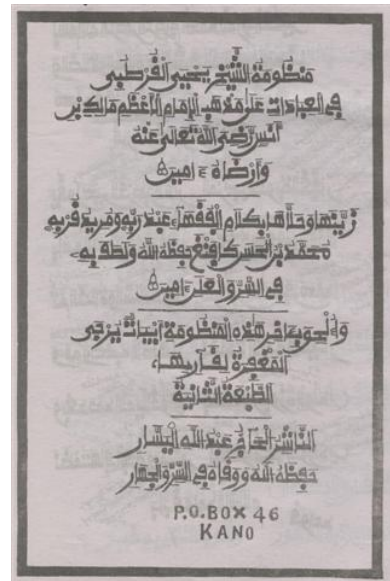 مَنظُومَةُ الشَّيْخِ يَحْيَى الْقُرْطُبِي
فِي الْعِبَادَاتِ عَلَى مَذْهَبِ الْإِمَامِ الْأَعْظَمِ مَالِكِ بْنِ
أَنَسٍ رَضِيَ اللهُ تَعَالَى عَنْهُ
وَأَرْضَاهُ ءَامِين
زَيَّنَهَا وَحَلَّاهَا بِكَلَامِ الْفُقَهَاءِ عَبْدُ رَبِّهِ وَمُرِيدُ قُرْبِهِ
مُحَمَّدُ بْنُ الْحَسَنِ حَفِظَهُ اللهُ وَلَطَفَ بِهِ
فِي السِّرِّ وَالْعَلَنِ ءَامِين
وَأَلْحَقَ بِآخِرِ هَذِهِ الْمَنْظُومَةِ أَبْيَاتٌ يُرْجَى
الْمَغْفِرَةُ لِقَارِيهَا
الطَّبْعَةُ الثَّانِيَةُ
النَّاشِرُ الْحَاجّ عَبْدُ اللهِ الْيَسَّار
حَفِظَهُ اللهُ وَوَقَاهُ فِي السِّرِّ وَالْجِهَار
P.O.BOX 46
KANO